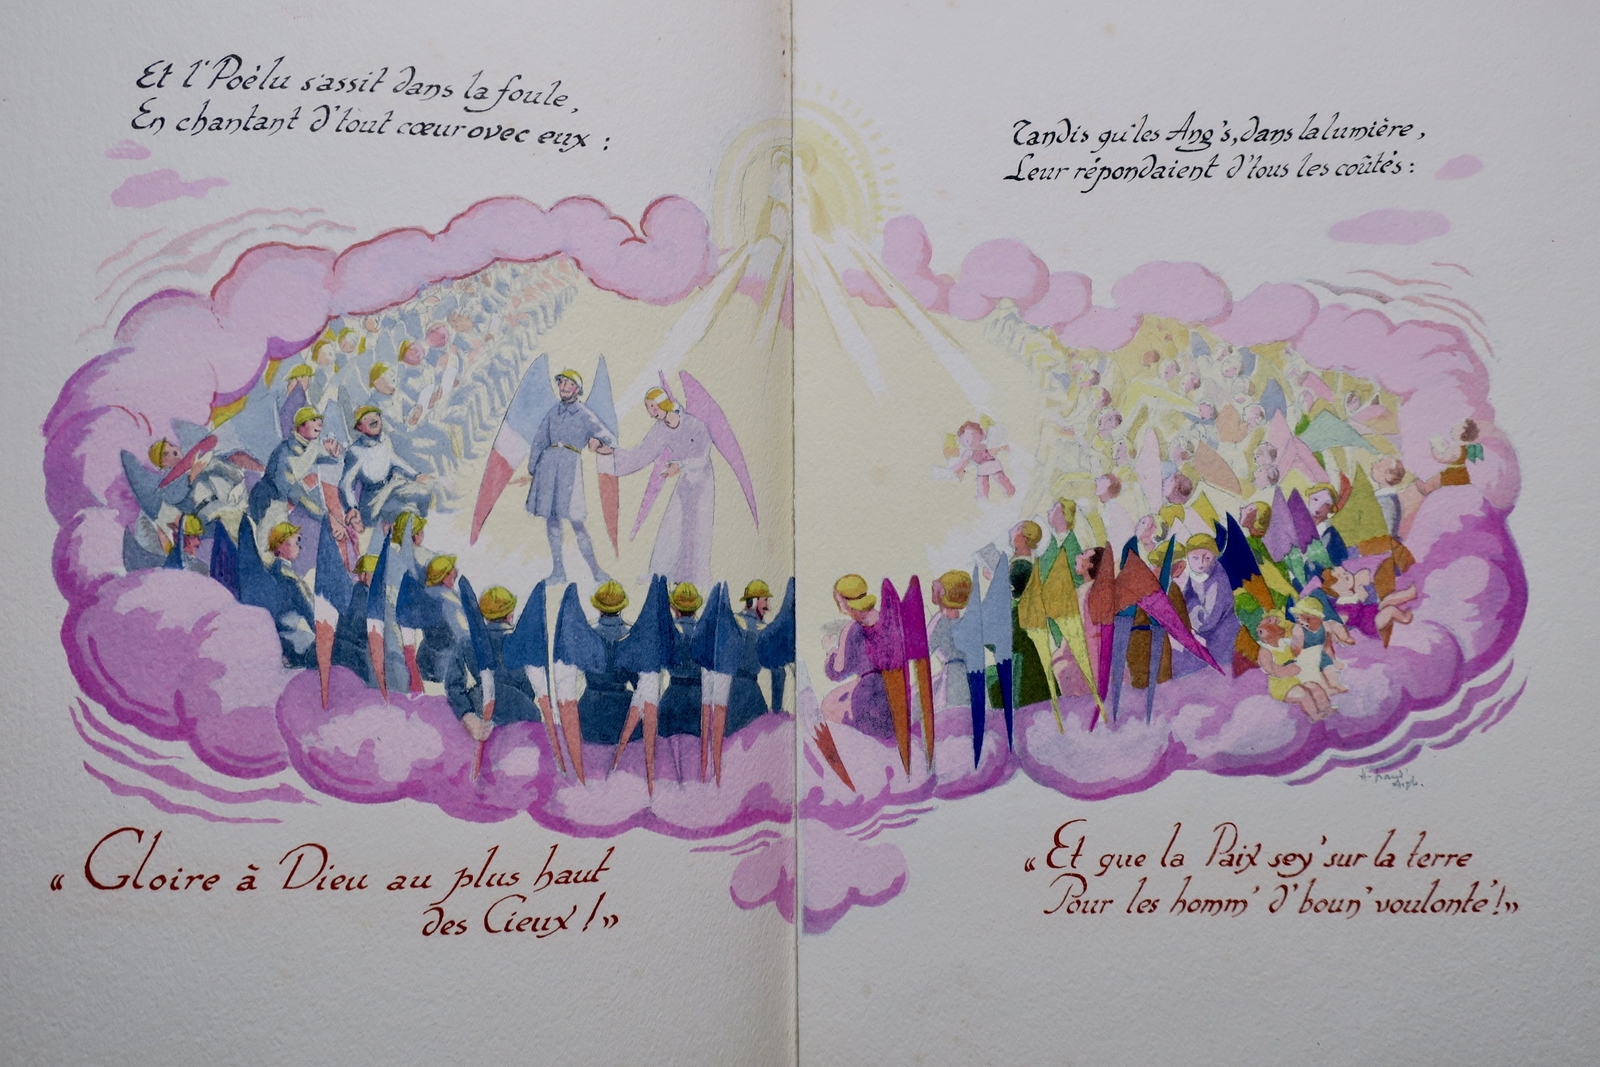 Et l'Poélu s'assit dans la foule,
En chantant d'tout cœur avec eux :
Tandis qu'les Ang's, dans la lumière,
Leur répondaient d'tous les coûtés :
« Gloire à Dieu au plus haut
des Cieux ! »
« Et que la Paix sey' sur la terre
Pour les homm' d'boun' voulonté ! »